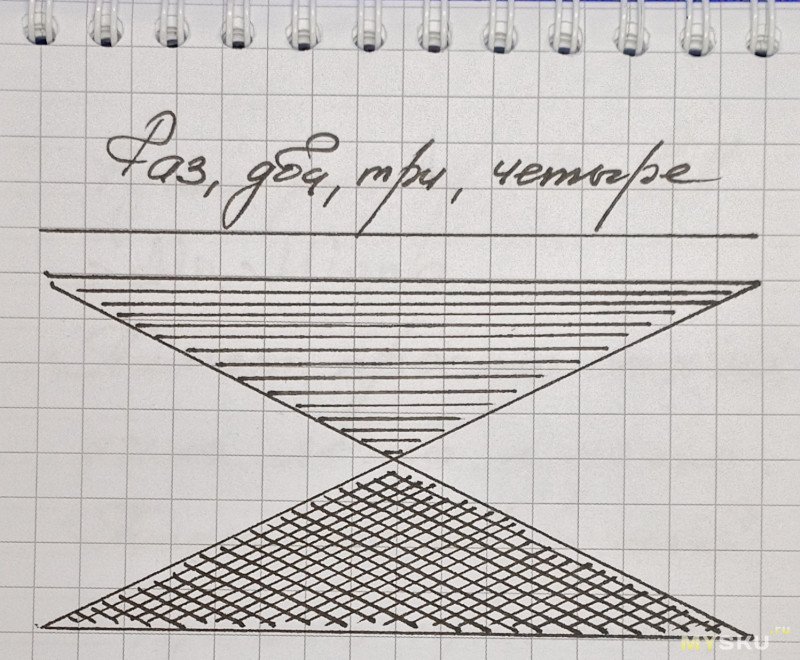 Раз, два, три, четыре
MYSKU.ru